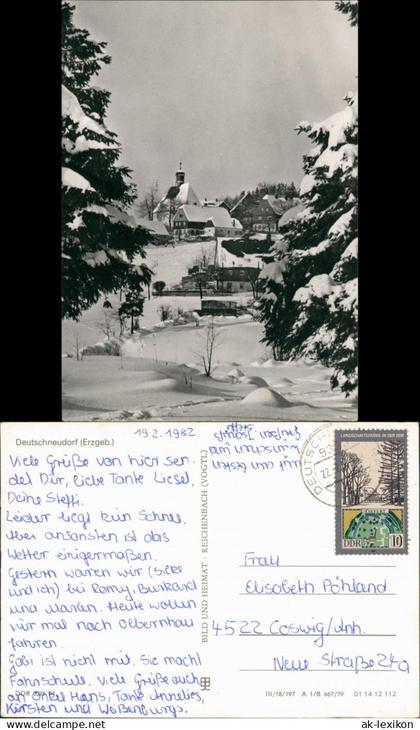 Deutschneudorf (Erzgeb.)
19.2.1982
Viele Grüße von hier sen-
det Dir, liebe Tante Liesel,
Deine Steffi.
Leider liegt kein Schnee.
Aber ansonsten ist das
Wetter einigermaßen.
Gestern waren wir (
und ich) bei Romy, Burkhard
und Marian. Heute wollen
wir mal nach Olbernhau
fahren.
Gabi ist nicht mit. Sie macht
Fahrschule. Viele Grüße auch
an Onkel Hans, Tante Annelies,
Kersten und Weißenburgs.
Mit den besten
Wünschen und
Grüßen
BILD UND HEIMAT · REICHENBACH (VOGTL)
DEUTSCH
LANDSCHAFTSPARKS IN DER DDR
DDR 10
Frau
Elisabeth Pöhland
4522 Coswig/Anh.
Neue Straße 24a
III/18/197 A 1/B 667/79 01 14 12 112
www.ak-lexikon.de